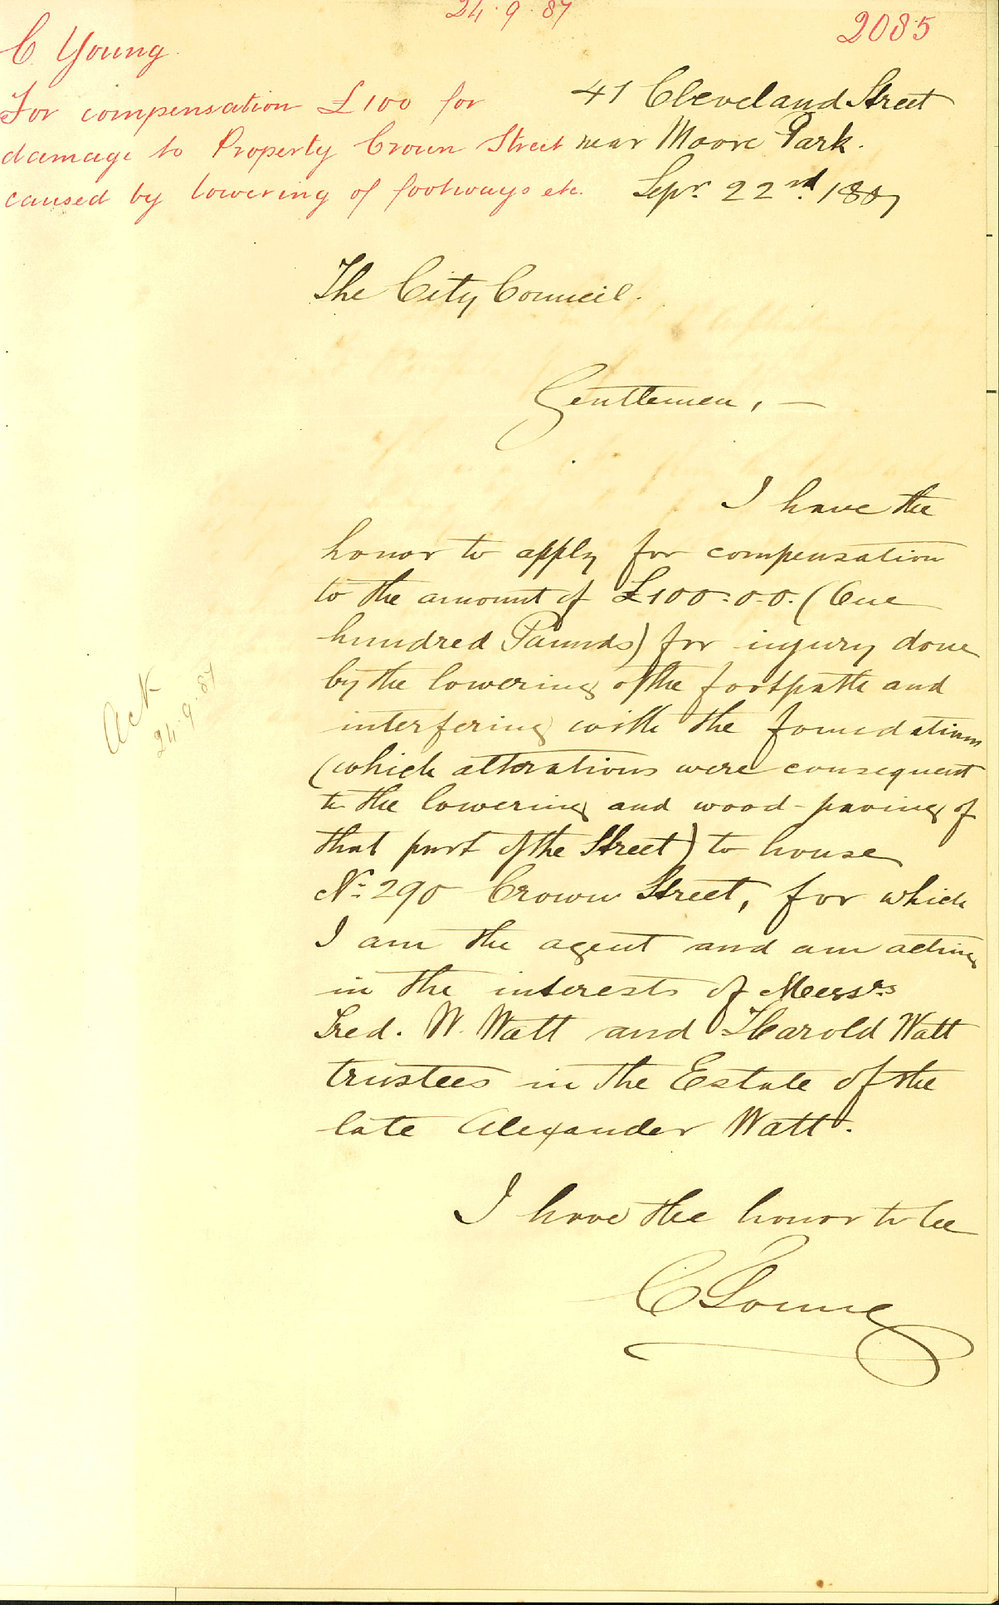 24.9.87
2085
C Young
For compensation £100 for
damage to Property Crown Street
caused by lowering of footways etc.
41 Cleveland Street
near Moore Park.
Sepr. 22nd. 1887
The City Council.
Gentlemen, —
I have the
honor to apply for compensation
to the amount of £100.0.0. (One
hundred Pounds) for injury done
by the lowering of the footpath and
interfering with the foundations
(which alterations were consequent
to the lowering and wood-paving of
that part of the Street) to house
No. 290 Crown Street, for which
I am the agent and am acting
in the interests of Messrs
Fred. W. Watt and Harold Watt
trustees in the Estate of the
late Alexander Watt.
I have the honor to be
C Young
Ack
24.9.87